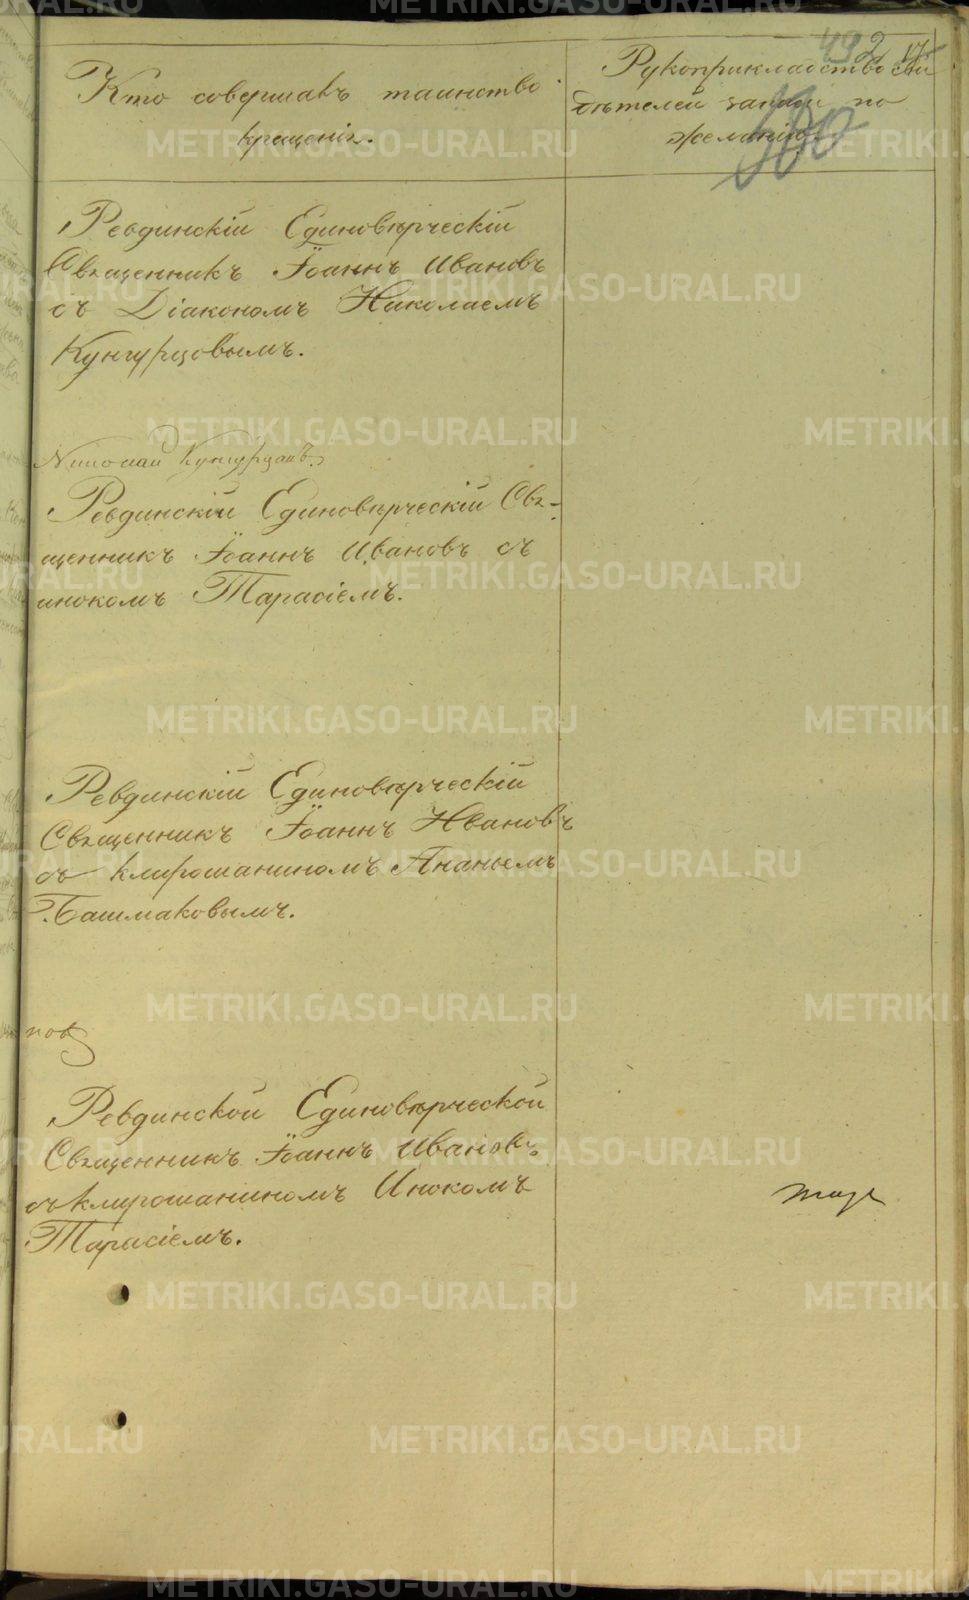 492 17
500
Кто совершалъ таинство
крещенія.
Рукоприкладство сви
дѣтелей записи по
желанію.
Ревдинскій Единовѣрческій
Священникъ Іоаннъ Ивановъ
съ Діакономъ Николаемъ
Кунгурцовымъ.
Николай Кунгурцовъ.
Ревдинскій Единовѣрческій Свя-
щенникъ Іоаннъ Ивановъ съ
инокомъ Тарасіемъ.
Ревдинскій Единовѣрческій
Священникъ Іоаннъ Ивановъ
съ клирошаниномъ Ананьемъ
Башмаковымъ.
Ревдинской Единовѣрческой
Священникъ Іоаннъ Ивановъ
съ клирошаниномъ Инокомъ
Тарасіемъ.
METRIKI.GASO-URAL.RU